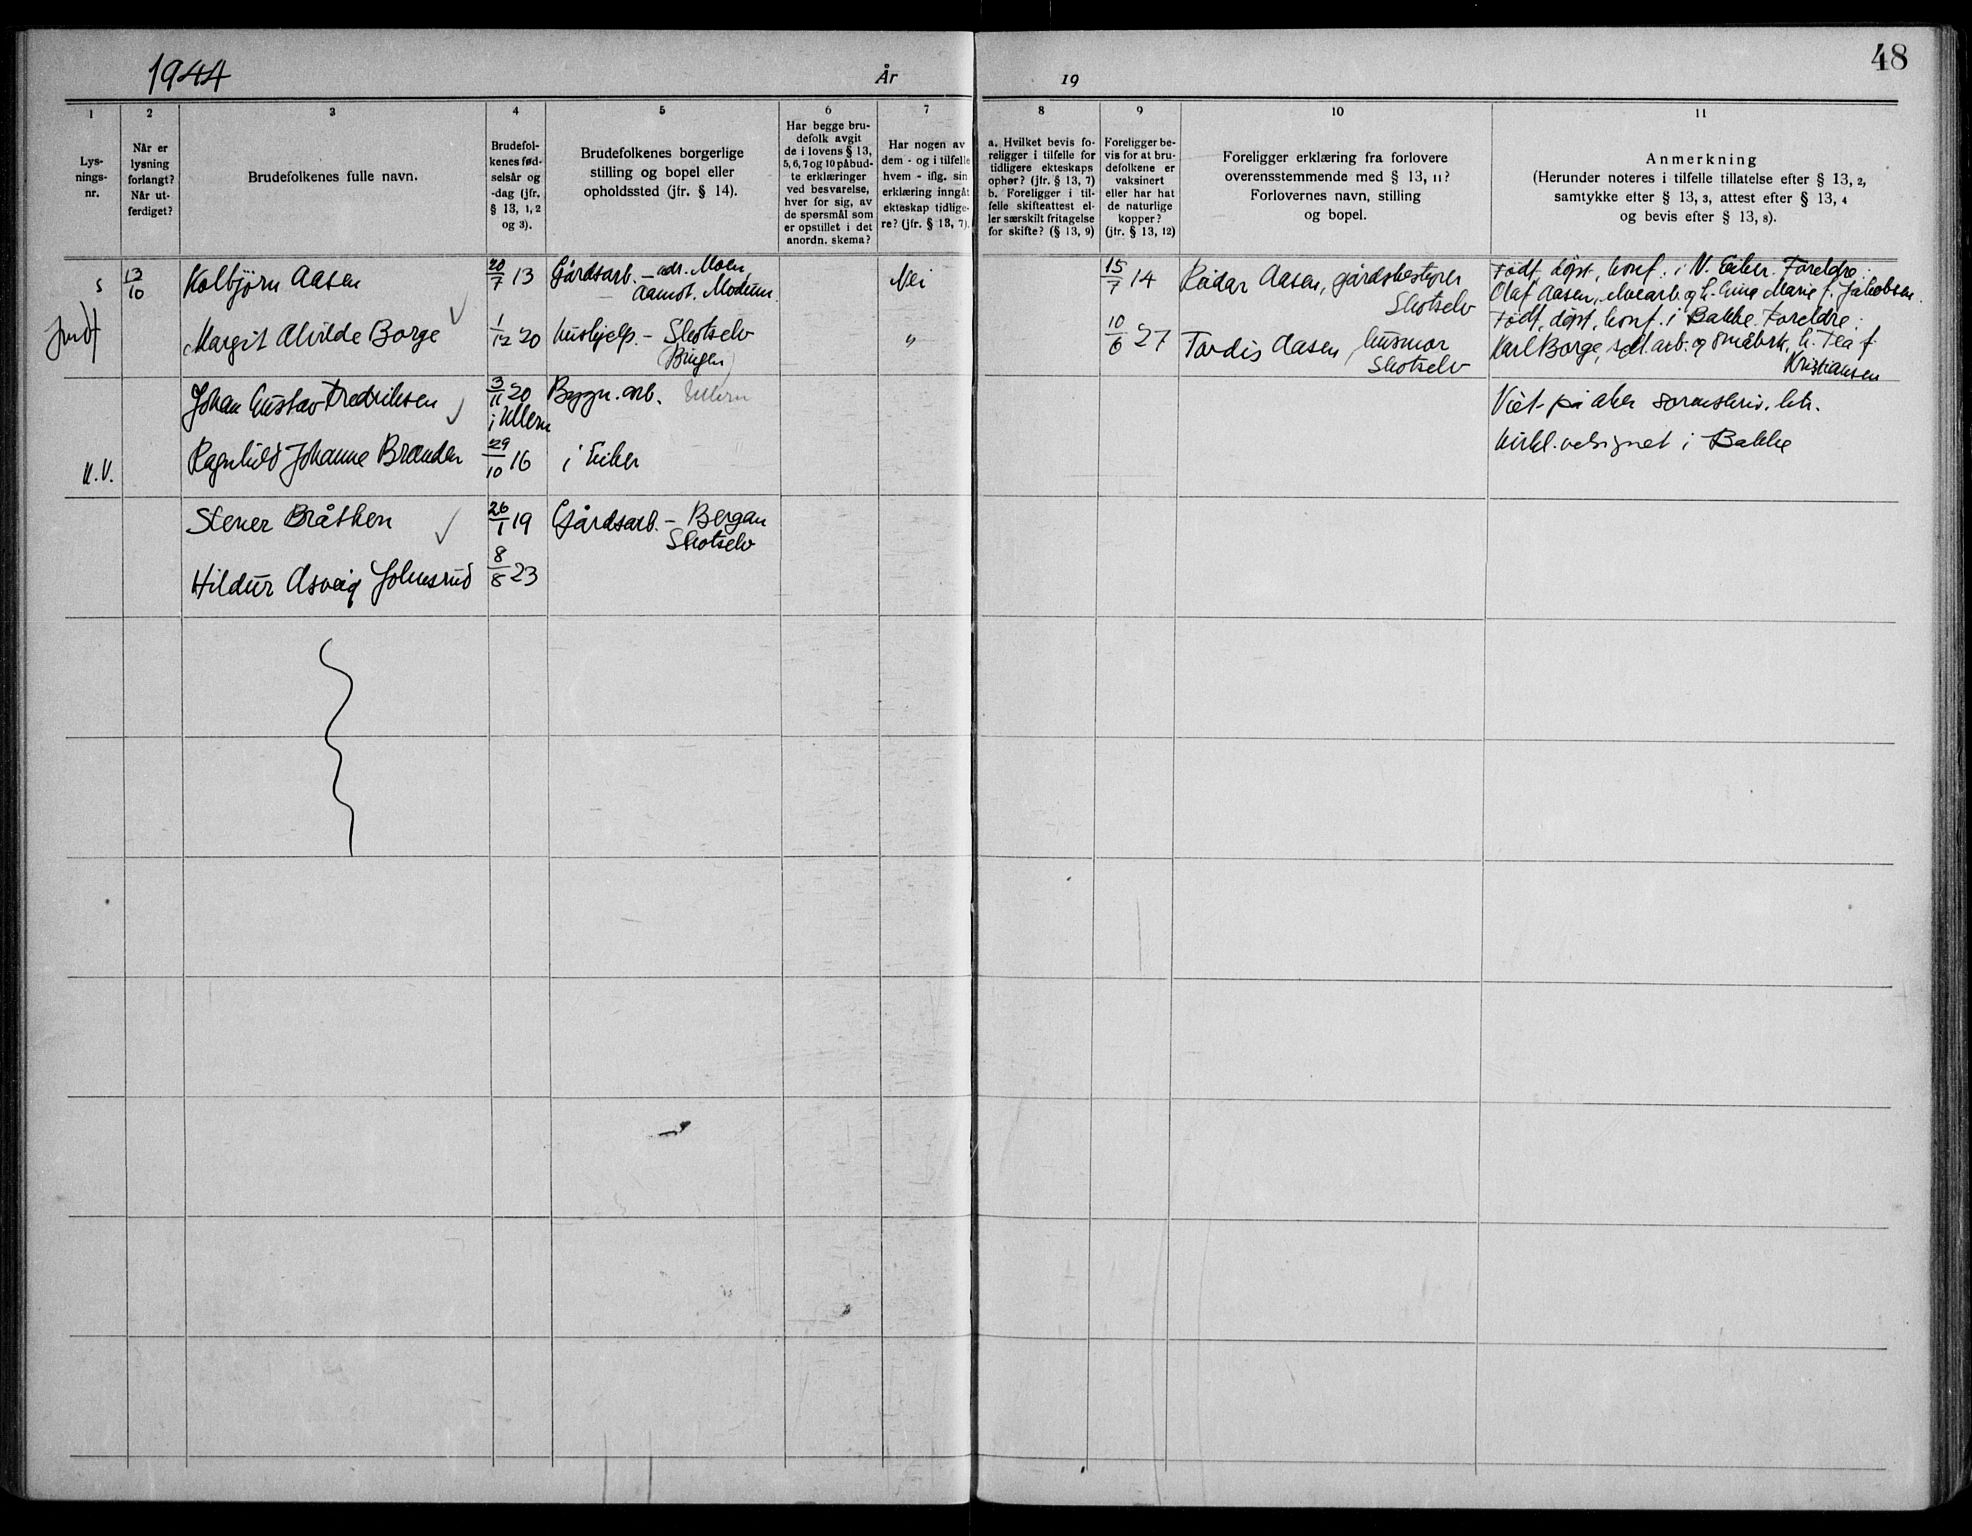 1944
År
19
48
1
2
3
4
5
6
7
8
9
10
11
Lys-
nings-
nr.
Når er
lysning
forlangt?
Når ut-
ferdiget?
Brudefolkenes fulle navn.
Brudefol-
kenes fød-
selsår og
-dag (jfr.
§ 13, 1, 2
og 3).
Brudefolkenes borgerlige
stilling og bopel eller
opholdssted (jfr. § 14).
Har begge bru-
defolk avgit
de i lovens § 13,
5, 6, 7 og 10 påbud-
te erklæringer
ved besvarelse,
hver for sig, av
de spørsmål som
er opstillet i det
anordn. skema?
Har nogen av
dem - og i tilfelle
hvem - iflg. sin
erklæring inngåt
ekteskap tidlige-
re? (jfr. § 13, 7).
a. Hvilket bevis fo-
religger i tilfelle for
tidligere ekteskaps
ophør? (jfr. § 13, 7)
b. Foreligger i til-
felle skifteattest el-
ler særskilt fritagelse
for skifte? (§ 13, 9)
Foreligger be-
vis for at bru-
defolkene er
vaksinert
eller har hat
de naturlige
kopper?
(jfr. § 13, 12)
Foreligger erklæring fra forlovere
overensstemmende med § 13, 11?
Forlovernes navn, stilling
og bopel.
Anmerkning
(Herunder noteres i tilfelle tillatelse efter § 13, 2,
samtykke efter § 13, 3, attest efter § 13, 4
og bevis efter § 13, 8).
5
13/10
Kolbjørn Aasen
20/7 13
Gårdsarb. - adr. Moen
Aamot. Modum.
Nei
15/7 14
Reidar Aasen, gårdsbestyrer
Skotselv
Født, døpt, konf. i N. Eiker. Foreldre:
Olaf Aasen, h. Marie f. Jakobsen.
Margit Alvilde Borge
1/12 20
Hushjelp. - Skotselv
"
10/6 27
Tordis Aasen, husmor
Skotselv
Født, døpt, konf. i Bakke. Foreldre:
Karl Borge, arb. og småbrk. h. Tea f.
Kristiansen
Johan Gustav Fredriksen
3/11 20
i Ullern
Bygn. arb. Ullern
Viet på Aker sorenskriv. ktr.
U.V.
Ragnhild Johanne Branden
29/10 16
i Eiker
Kirkl. velsignet i Bakke
Stener Bråthen
26/1 19
Gårdsarb. - Bergan
Skotselv
Hildur Asveig Johnsrud
8/8 23